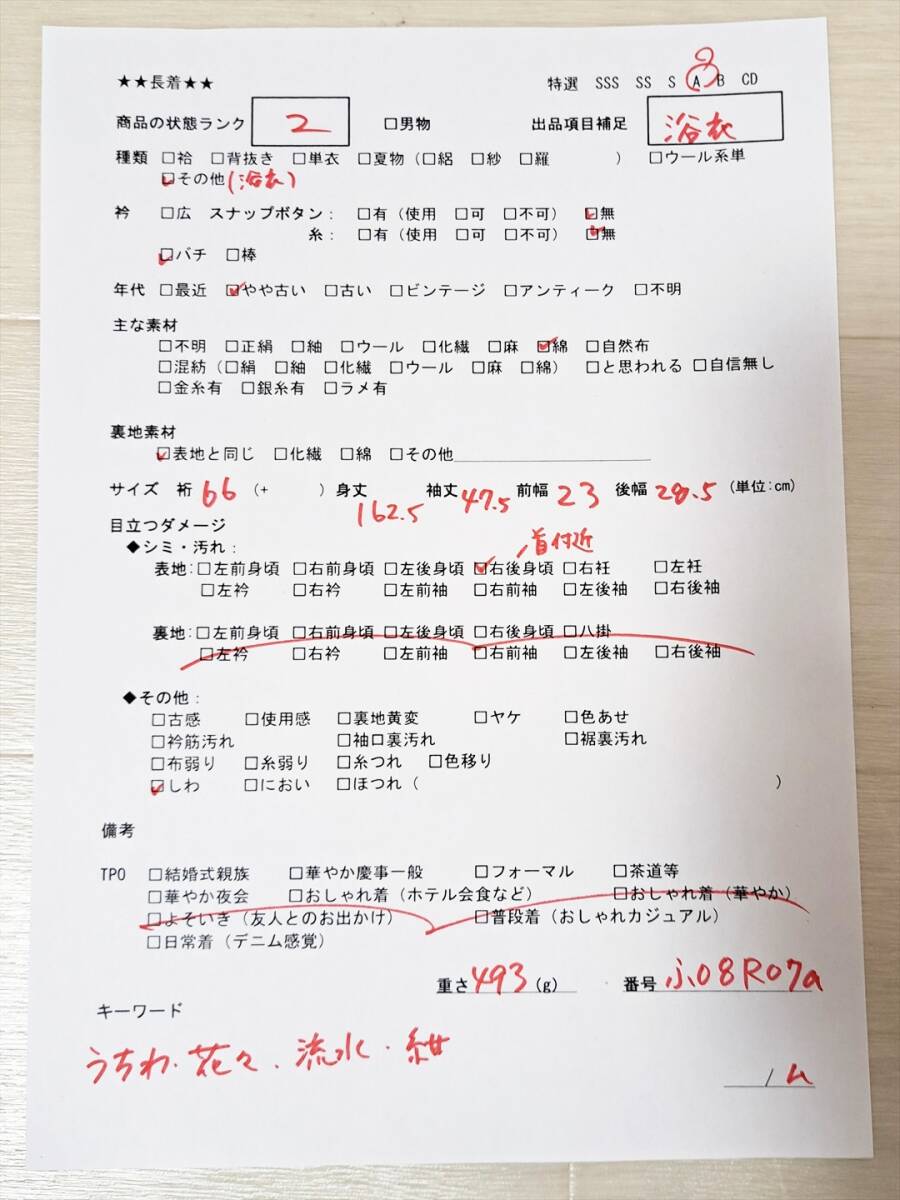 ★★長着★★ 特選 SSS SS S A B CD
商品の状態ランク 2 □男物 出品項目補足 浴衣
種類 □袷 □背抜き □単衣 □夏物(□絽 □紗 □羅 ) □ウール系単
☑その他(浴衣)
衿 □広 スナップボタン: □有(使用 □可 □不可) ☑無
糸:□有(使用 □可 □不可) ☑無
☑バチ □棒
年代 □最近 ☑やや古い □古い □ビンテージ □アンティーク □不明
主な素材
□不明 □正絹 □紬 □ウール □化繊 □麻 ☑綿 □自然布
□混紡(□絹 □紬 □化繊 □ウール □麻 □綿) □と思われる □自信無し
□金糸有 □銀糸有 □ラメ有
裏地素材
☑表地と同じ □化繊 □綿 □その他
サイズ 裄 66 (+ ) 身丈 162.5 袖丈 47.5 前幅 23 後幅 28.5 (単位:cm)
目立つダメージ
◆シミ・汚れ: 首付近
表地:□左前身頃 □右前身頃 □左後身頃 ☑右後身頃 □右衽 □左衽
□左衿 □右衿 □左前袖 □右前袖 □左後袖 □右後袖
裏地:□左前身頃 □右前身頃 □左後身頃 □右後身頃 □八掛
□左衿 □右衿 □左前袖 □右前袖 □左後袖 □右後袖
◆その他:
□古感 □使用感 □裏地黄変 □ヤケ □色あせ
□衿筋汚れ □袖口裏汚れ □裾裏汚れ
□布弱り □糸弱り □糸つれ □色移り
☑しわ □におい □ほつれ( )
備考
TPO □結婚式親族 □華やか慶事一般 □フォーマル □茶道等
□華やか夜会 □おしゃれ着(ホテル会食など) □おしゃれ着(華やか)
□よそいき(友人とのお出かけ) □普段着(おしゃれカジュアル)
□日常着(デニム感覚)
重さ 493 (g) 番号 ふ08R07a
キーワード
うちわ・花々・流水・紺
/ム